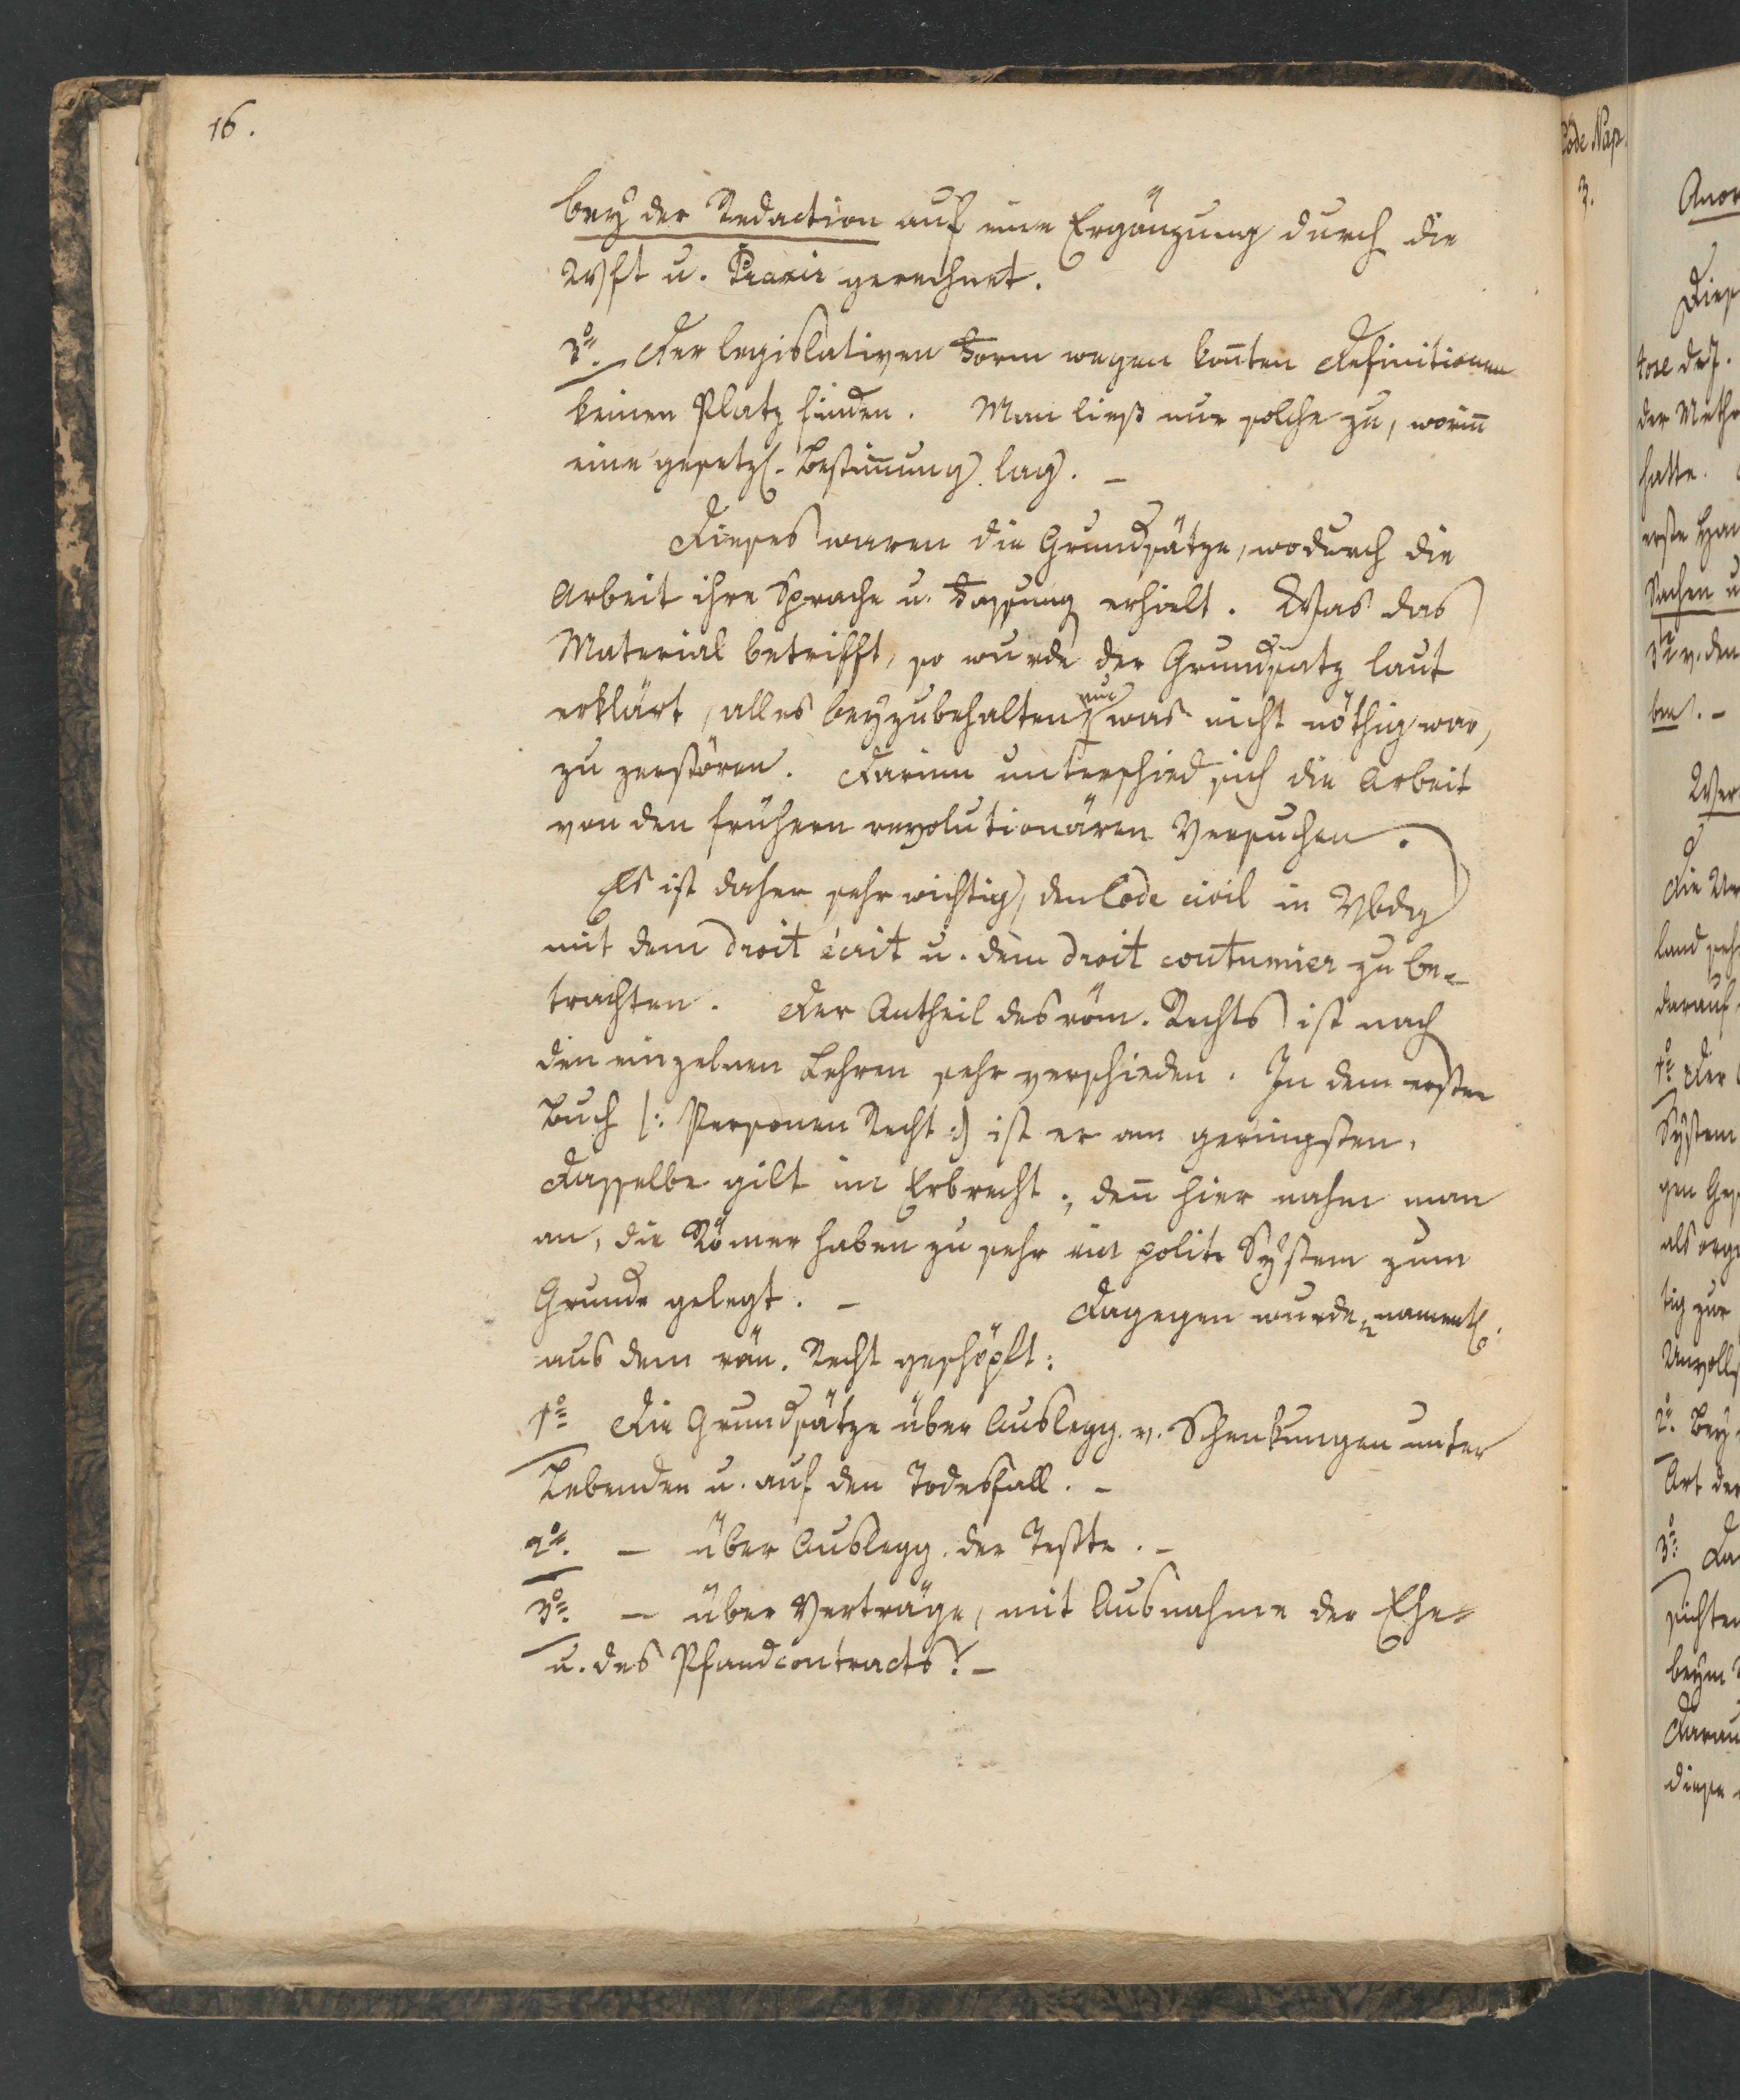 16.
bey der Redaction auf eine Ergänzung durch die
Wsft u. Praxis gerechnet.
3o. Der legislativen Form wegen konnten Definitionen
keinen Platz finden. Man ließ nur solche zu, worinn
eine gesetzl. Bestimmung lag. –
Dieses waren die Grundsätze, wodurch die
Arbeit ihre Sprache u. Fassung erhielt. Was das
Material betrifft, so wurde der Grundsatz laut
erklärt, alles beyzubehalten was nicht nöthig war,
zu zerstören. Darinn unterschied sich die Arbeit
von den frühern revolutionären Versuchen.
Es ist daher sehr wichtig, den Code civil in Vbdg
mit dem droit écrit u. dem droit coutumier zu be-
trachten. Der Antheil des röm. Rechts ist nach
den einzelnen Lehren sehr verschieden. In dem ersten
Buch /: Personen Recht :/ ist er am geringsten.
Dasselbe gilt im Erbrecht; denn hier nahm man
an, die Römer haben zu sehr ein polit. System zum
Grunde gelegt. – Dagegen wurde namentl.
aus dem röm. Recht geschöpft:
1o Die Grundsätze über Auslegg. v. Schenkungen unter
Lebenden u. auf den Todesfall. –
2o. – über Auslegg. der Testte. –
3o. – über Verträge, mit Ausnahme der Ehe-
u. des Pfandcontracts. –
Code Nap.
3.